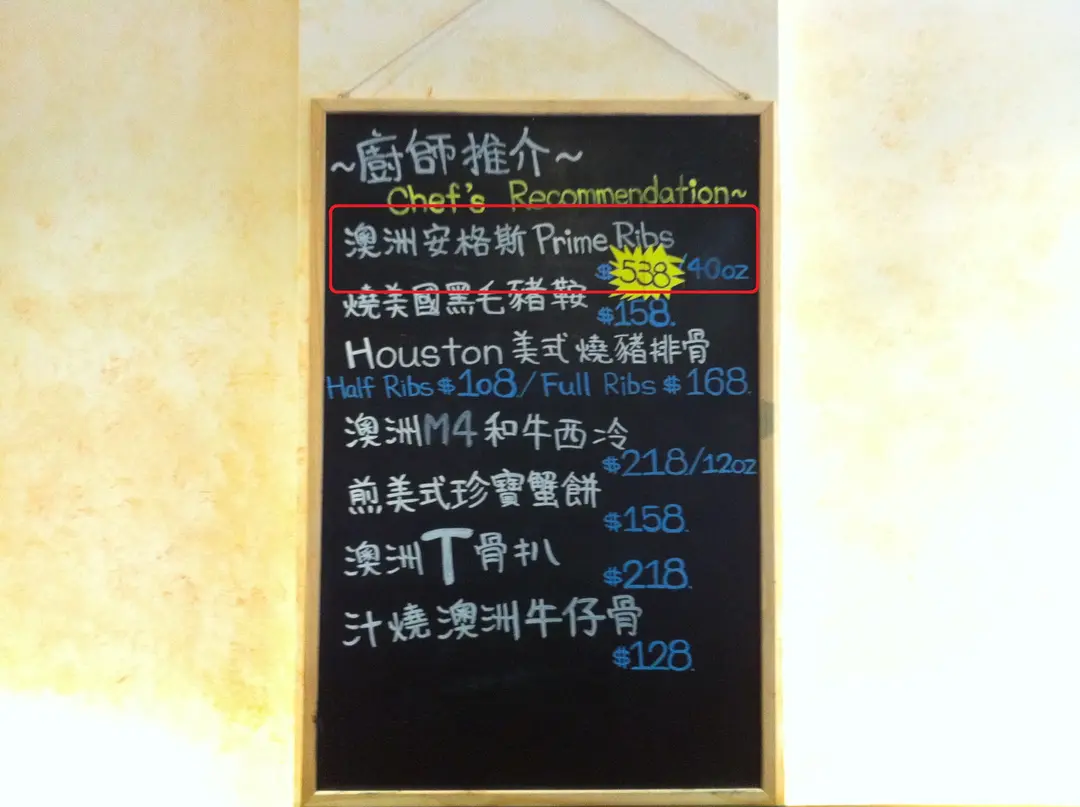 ~廚師推介~
Chef's Recommendation~
澳洲安格斯 Prime Ribs
$538/40oz
燒美國黑毛豬鞍
$158.
Houston 美式燒豬排骨
Half Ribs $108./Full Ribs $168.
澳洲M4和牛西冷
$218/12oz
煎美式珍寶蟹餅
$158.
澳洲T骨扒
$218.
汁燒澳洲牛仔骨
$128.